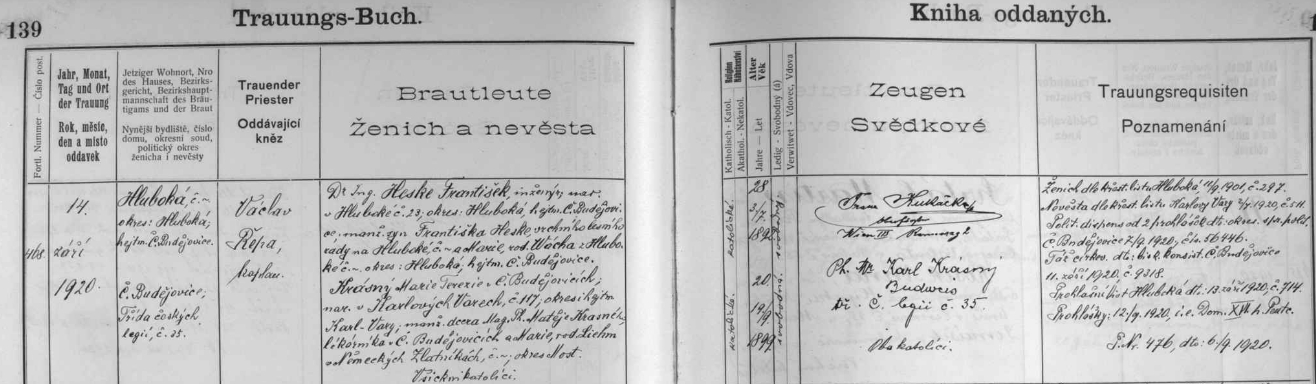 139
Trauungs-Buch.
Fortl. Nummer — Číslo post.
Jahr, Monat,
Tag und Ort
der Trauung
Rok, měsíc,
den a místo
oddavek
Jetziger Wohnort, Nro
des Hauses, Bezirks-
gericht, Bezirkshaupt-
mannschaft des Bräu-
tigams und der Braut
Nynější bydliště, číslo
domu, okresní soud,
politický okres
ženicha i nevěsty
Trauender
Priester
Oddávající
kněz
Brautleute
Ženich a nevěsta
468.
14.
září
1920.
Hluboká, č. ~
okres: Hluboká,
hejtm. C. Budějovice.
Č. Budějovice,
Třída českých
legií, č. 35.
Václav
Řepa,
kaplan.
Dr. Ing. Heske František, inženýr, nar.
v Hluboké č. 23, okres: Hluboká, hejtm. C. Budějovi-
ce, manž. syn Františka Heske, vrchního lesního
rady na Hluboké č. ~ a Marie, rod. Wácha z Hlubo-
ké č. ~, okres: Hluboká, hejtm. C. Budějovice.
Krásný Marie Terezie v C. Budějovicích,
nar. v Karlových Varech, č. 117, okres i hejtm.
Karl. Vary, manž. dcera Mag. Ph. Matěje Krásného,
lékárníka v C. Budějovicích a Marie, rod. Liehm
z Německých Zlatníkách, č. ~, okres Most.
Všickni katolíci.
Kniha oddaných.
Religion
Katholisch - Katol.
Akathol. - Nekatol.
Alter
Věk
Jahre — Let
Ledig - Svobodný (á)
Verwitwet - Vdovec, Vdova
Zeugen
Svědkové
Trauungsrequisiten
Poznamenání
katolické.
28
3/7.
1892
svobodný
katolické.
20.
14/9
1899
svobodná.
Wien III
Ph. Mr. Karl Krásný
Budweis
tř. Č. legií č. 35.
Oba katolíci.
Ženich dle křest. listu Hluboká, 11/9. 1901, č. 297.
Nevěsta dle křest. listu Karlovy Vary 1920, č. 511.
Polit. dispens od 2 prohlášek dto. okres. spr. polit.
Č. Budějovice 7/9. 1920, čís. 56446.
Táž církev. dto. bisk. konsist. Č. Budějovice
11. září 1920. č. 9318.
Prohlašní list Hluboká dto. 13. září 1920, č. 714.
Prohlášky: 12./9. 1920, i. e. Dom. XVI p. Pente.
P. Nr. 476, dto: 6./9. 1920.